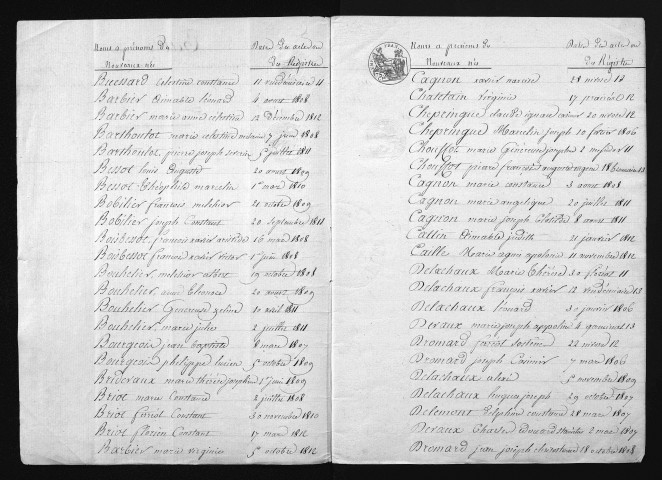 Noms et prénoms des
Nouveaux nés
Date des actes ou
du Registre
Bressard célestine constance 11 vendémiaire 11
Barbier Aimable Léonard 4 aoust 1808
Barbier marie aimée célestine 12 Décembre 1812
Barthoulot marie célestine 7 juin 1808
Barthoulot pierre joseph 5 juillet 1811
Bessot Louis Auguste 20 aoust 1809
Bessot Théophile marcelin 1er mai 1810
Bobilier francois melchior 21 octobre 1809
Bobilier joseph Constant 20 septembre 1811
Boibessot francois xavier aristide 16 mai 1808
Boibessot francois xavier victor 1er juin 1808
Bouhelier melchior albert 19 octobre 1808
Bouhelier aimé Etienne 20 aoust 1809
Bouhelier Généreuse zeline 10 avril 1811
Bouhelier marie julie 2 juillet 1811
Bourgeois jean baptiste 8 mars 1807
Bourgeois philippe lucien 5 octobre 1809
Briseraux marie thérèse josephine 1er juin 1809
Briot marie Constance 2 juillet 1808
Briot Constant 30 novembre 1810
Briot florien Constant 17 mars 1812
Barbier marie virginie 5 octobre 1812
Noms et prénoms des
Nouveaux nés
Date des actes ou
du Registre
Cagnon xavier narcisse 28 nivose 12
Chatelain virginie 17 prairial 12
Chopringue claude ignace 20 nivose 12
Chopringue joseph 10 février 1806
Chouffot marie Généreuse josephine 2 messidor 11
Chouffot francois 18 brumaire 13
Cagnon marie constance 3 aout 1808
Cagnon marie angelique 20 juillet 1811
Cagnon marie joseph Clotilde 8 aoust 1811
Cattin Aimable judith 11 janvier 1812
Caille marie apolonie 11 novembre 1812
Delachaux Marie Thérèse 11
Delachaux françois xavier 12 vendémiaire 13
Delachaux Léonard 30 janvier 1806
Deraux marie joseph appoline 4 germinal 13
Dromard 22 nivose 12
Dromard joseph Casimir 7 mai 1806
Delachaux alexis 5 novembre 1809
Delachaux joseph 29 octobre 1807
Delemont Delphine constance 28 mars 1807
Deraux Charles Edouard 2 mai 1807
Dromard jean joseph 18 octobre 1808